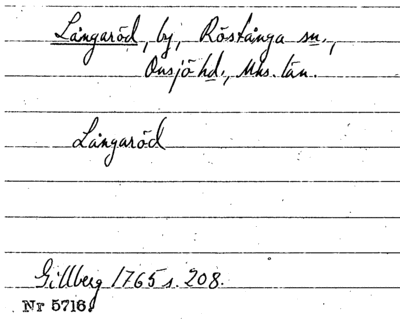 Långaröd, by, Röstånga sn.,
Onsjö hd., Mhs. län.
Långaröd
Gillberg 1765 s. 208.
Nr 5716.